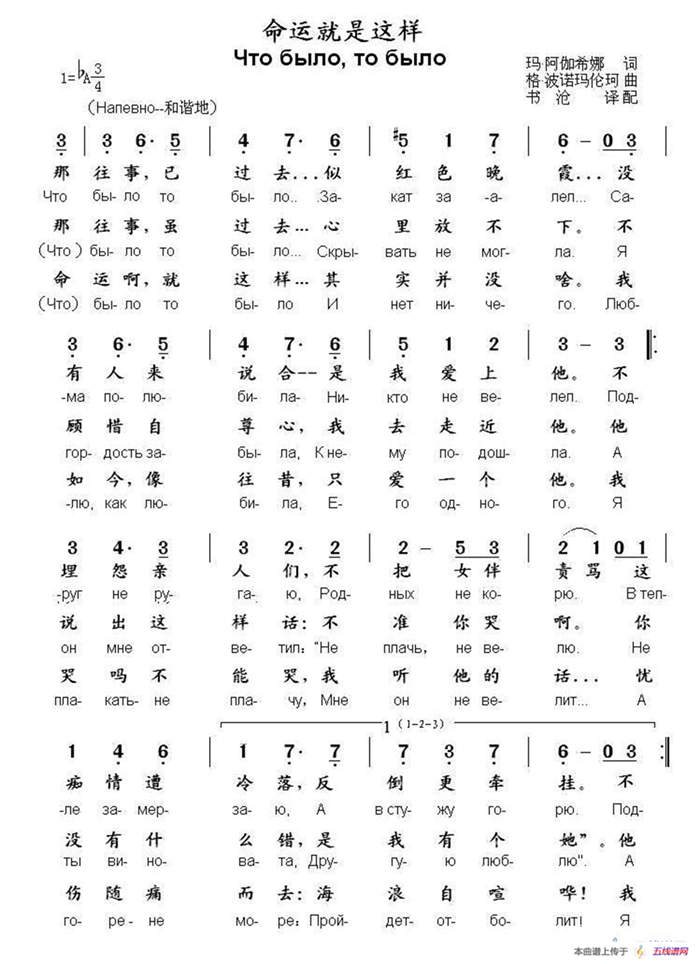 命运就是这样
Что было, то было
1=♭A 3/4
玛·阿伽希娜 词
格·波诺玛伦珂 曲
书 沧 译配
(Напевно--和谐地)
3 | 3 6· 5 | 4 7· 6 | #5 1 7 | 6 – 0 3 |
那 往 事, 已 过 去... 似 红 色 晚 霞... 没
Что бы- ло то бы- ло.. За- кат за -а- лел... Са-
那 往 事, 虽 过 去... 心 里 放 不 下。 不
(Что) бы- ло то бы- ло... Скры- вать не мог- ла. Я
命 运 啊, 就 这 样... 其 实 并 没 啥。 我
(Что) бы- ло то было И нет ни- че- го. Люб-
3 6· 5 | 4 7· 6 | 5 1 2 | 3 – 3 ‖:
有 人 来 说 合-- 是 我 爱 上 他。 不
-ма по- лю- би- ла- Ни- кто не ве- лел. Под-
顾 惜 自 尊 心, 我 去 走 近 他。 他
гор- дость за- бы- ла, К не- му по- дош- ла. А
如 今, 像 往 昔, 只 爱 一 个 他。 我
-лю, как лю- би- ла, Е- го од- но- го. Я
3 4· 3 | 3 2· 2 | 2 – 5 3 | 2 1 0 1 |
埋 怨 亲 人 们, 不 把 女 伴 责 骂 这
-руг не ру- га- ю, Род- ных не ко- рю. В теп-
说 出 这 样 话: 不 准 你 哭 啊。 你
он мне от- ве- тил: "Не плачь, не ве- лю. Не
哭 吗 不 能 哭, 我 听 他 的 话... 忧
пла- кать- не пла- чу, Мне он не ве- лит... А
1 (1-2-3)
1 4 6 | 1 7· 7 | 7 3 7 | 6 – 0 3 :‖
痴 情 遭 冷 落, 反 倒 更 牵 挂。 不
-ле за- мер- за- ю, А в сту- жу го- рю. Под-
没 有 什 么 错, 是 我 有 个 她”。 他
ты ви- но- ва- та, Дру- гу- ю люб- лю". А
伤 随 痛 而 去: 海 浪 自 喧 哗! 我
го- ре- не мо- ре: Прой- дет- от- бо- лит! Я
本曲谱上传于 五线谱网